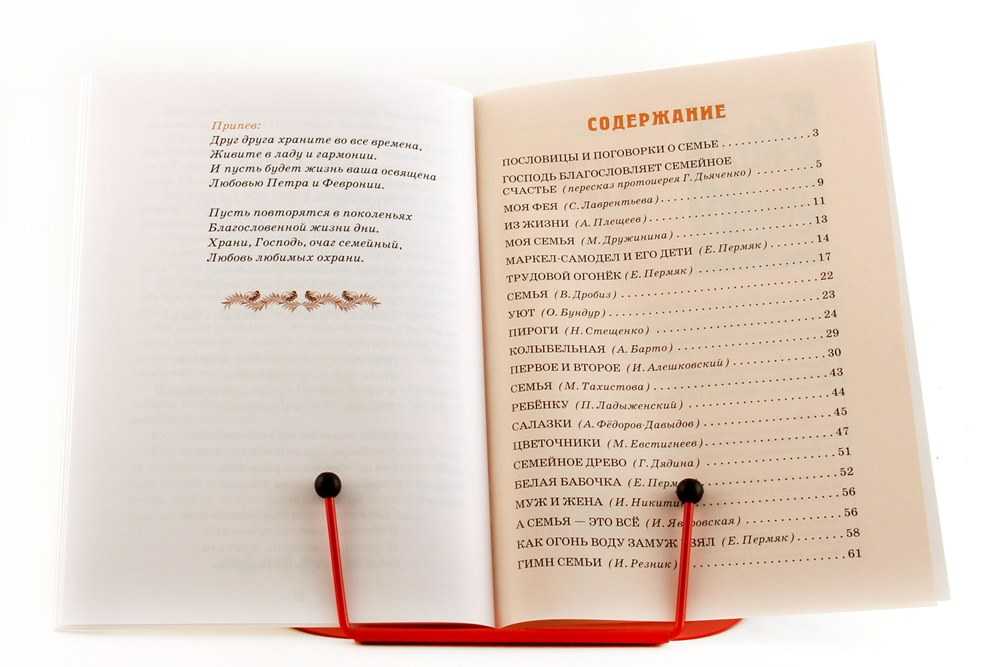 Припев:
Друг друга храните во все времена,
Живите в ладу и гармонии.
И пусть будет жизнь ваша освящена
Любовью Петра и Февронии.
Пусть повторятся в поколеньях
Благословенной жизни дни.
Храни, Господь, очаг семейный,
Любовь любимых охрани.
СОДЕРЖАНИЕ
ПОСЛОВИЦЫ И ПОГОВОРКИ О СЕМЬЕ . . . . . . . . . . . . 3
ГОСПОДЬ БЛАГОСЛОВЛЯЕТ СЕМЕЙНОЕ
СЧАСТЬЕ (пересказ протоиерея Г. Дьяченко) . . . . . . . . 5
МОЯ ФЕЯ (С. Лаврентьева) . . . . . . . . . . . . . . . . . . . . 9
ИЗ ЖИЗНИ (А. Плещеев) . . . . . . . . . . . . . . . . . . . . . 11
МОЯ СЕМЬЯ (М. Дружинина) . . . . . . . . . . . . . . . . . . 13
МАРКЕЛ-САМОДЕЛ И ЕГО ДЕТИ (Е. Пермяк) . . . . . . 14
ТРУДОВОЙ ОГОНЁК (Е. Пермяк) . . . . . . . . . . . . . . . 17
СЕМЬЯ (В. Дробиз) . . . . . . . . . . . . . . . . . . . . . . . . . 22
УЮТ (О. Бундур) . . . . . . . . . . . . . . . . . . . . . . . . . . . 23
ПИРОГИ (Н. Стещенко) . . . . . . . . . . . . . . . . . . . . . . 24
КОЛЫБЕЛЬНАЯ (А. Барто) . . . . . . . . . . . . . . . . . . . 29
ПЕРВОЕ И ВТОРОЕ (И. Алешковский) . . . . . . . . . . . 30
СЕМЬЯ (М. Тахистова) . . . . . . . . . . . . . . . . . . . . . . 43
РЕБЁНКУ (П. Ладыженский) . . . . . . . . . . . . . . . . . . 44
САЛАЗКИ (А. Фёдоров-Давыдов) . . . . . . . . . . . . . . . 45
ЦВЕТОЧНИКИ (М. Евстигнеев) . . . . . . . . . . . . . . . . 47
СЕМЕЙНОЕ ДРЕВО (Г. Дядина) . . . . . . . . . . . . . . . . 51
БЕЛАЯ БАБОЧКА (Е. Перм . . . . . . . . . . . . . . . . 52
МУЖ И ЖЕНА (И. Никитин . . . . . . . . . . . . . . . . 56
А СЕМЬЯ — ЭТО ВСЁ (И. Яворовская) . . . . . . . . . . . 56
КАК ОГОНЬ ВОДУ ЗАМУЖ ВЗЯЛ (Е. Пермяк) . . . . . . 58
ГИМН СЕМЬИ (И. Резник) . . . . . . . . . . . . . . . . . . . . 61